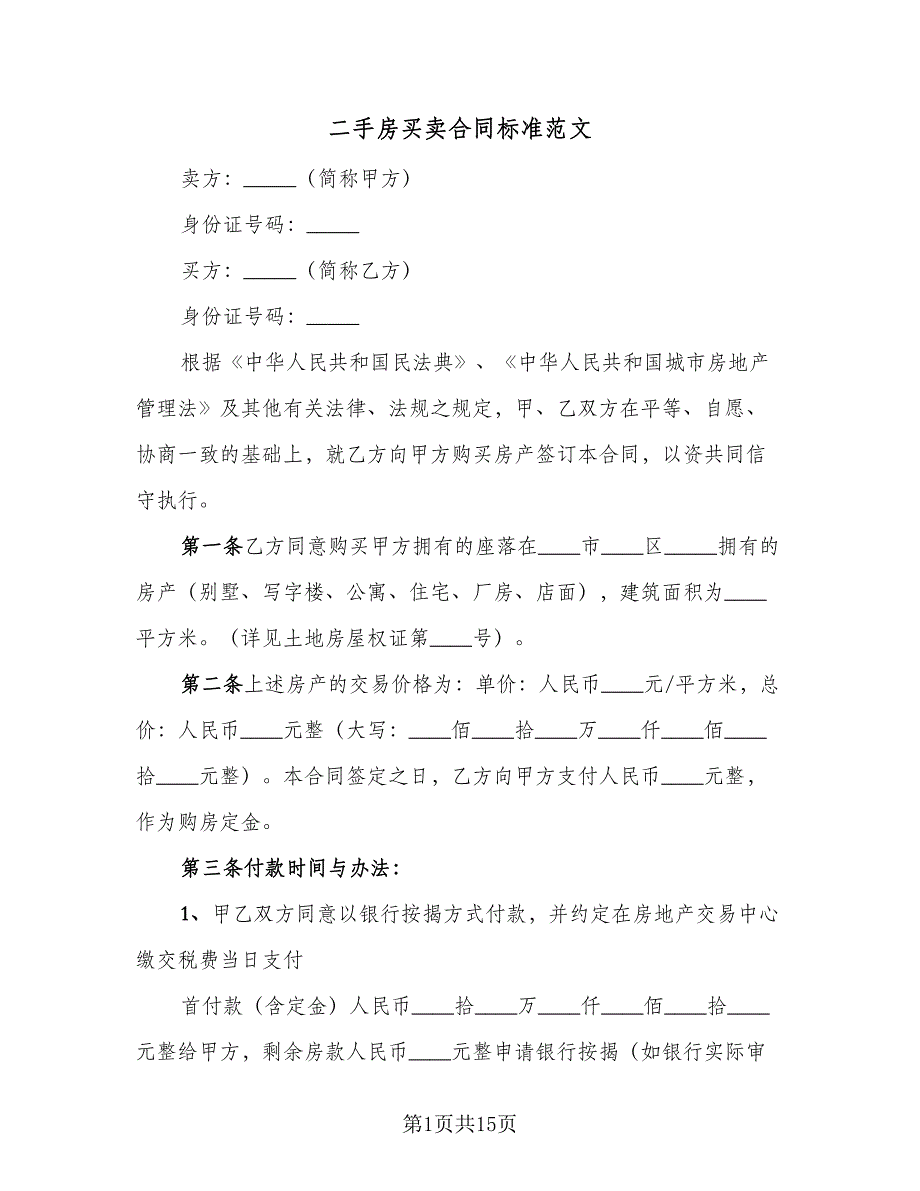 二手房买卖合同标准范文
卖方：_____（简称甲方）
身份证号码：_____
买方：_____（简称乙方）
身份证号码：_____
根据《中华人民共和国民法典》、《中华人民共和国城市房地产
管理法》及其他有关法律、法规之规定，甲、乙双方在平等、自愿、
协商一致的基础上，就乙方向甲方购买房产签订本合同，以资共同信
守执行。
第一条乙方同意购买甲方拥有的座落在____市____区_____拥有的
房产（别墅、写字楼、公寓、住宅、厂房、店面），建筑面积为____
平方米。（详见土地房屋权证第____号）。
第二条上述房产的交易价格为：单价：人民币____元/平方米，总
价：人民币____元整（大写：____佰____拾____万____仟____佰____
拾____元整）。本合同签定之日，乙方向甲方支付人民币____元整，
作为购房定金。
第三条付款时间与办法：
1、甲乙双方同意以银行按揭方式付款，并约定在房地产交易中心
缴交税费当日支付
首付款（含定金）人民币____拾____万____仟____佰____拾____
元整给甲方，剩余房款人民币____元整申请银行按揭（如银行实际审
第1页共15页